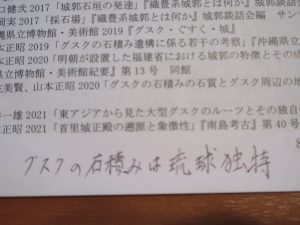 健弐 2017「城郭石垣の発達」『織豊系城郭とは何か』城郭談話
明実 2017「採石場」『織豊系城郭とは何か』城郭談話会編 サン
縄県立博物館・美術館 2019『グスク・ぐすく・城』
本正昭 2019「グスクの石積み遺構に係る若干の考察」『沖縄県立
本正昭 2020「明朝が設置した福建省における城郭の特徴とその成
明・美術館紀要』第 13 号 同館
美賢、山本正昭 2020「グスクの石積みの石質とグスク周辺の地
一雄 2021「東アジアから見た大型グスクのルーツとその独自
正昭 2021「首里城正殿の遡源と象徴性」『南島考古』第 40 号
8
グスクの石積みは琉球独特